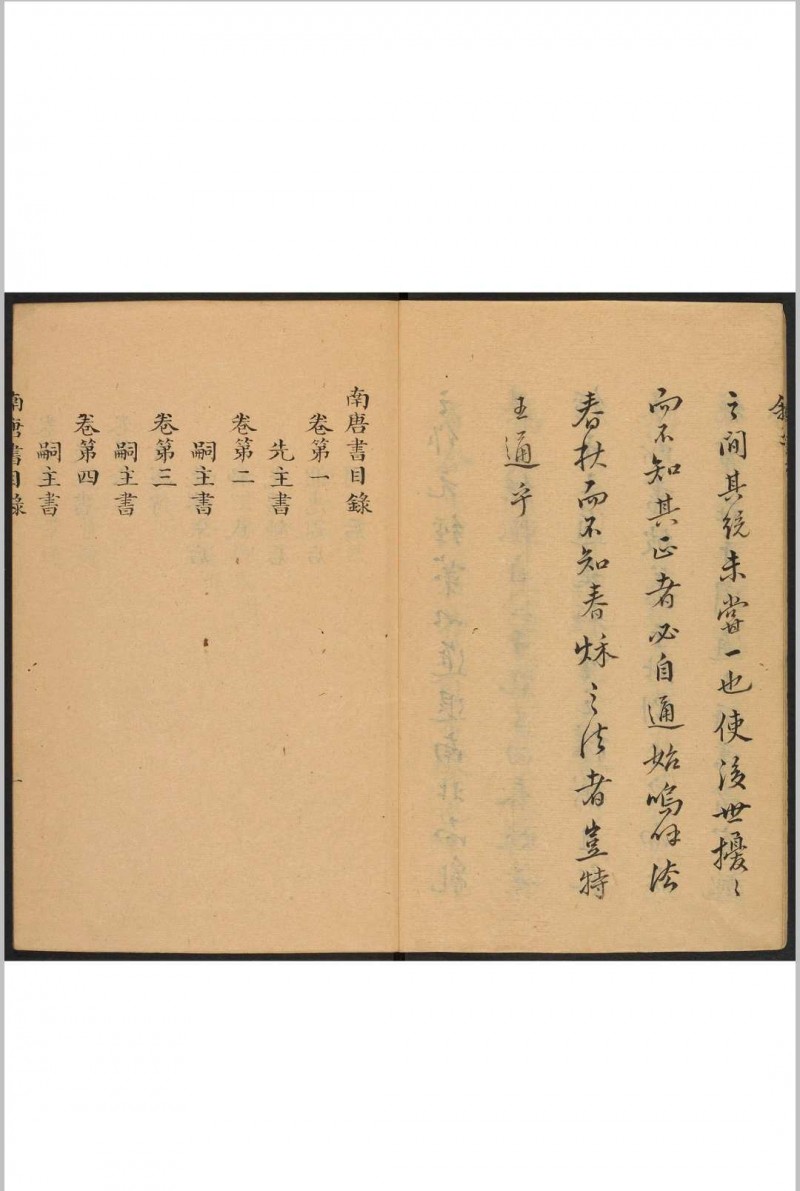 之間其統未嘗一也使後世擾〻
而不知其正者必自通始嗚呼法
春秋而不知春秌之法者豈特
王通乎
南唐書目錄
卷第一
先主書
卷第二
嗣主書
卷第三
嗣主書
卷第四
嗣主書
南唐書目錄
一